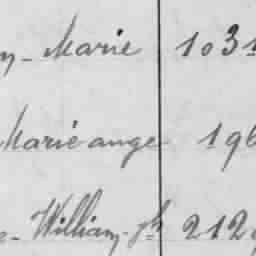 Marie 1031
Marie ange 196
William-Jh 212